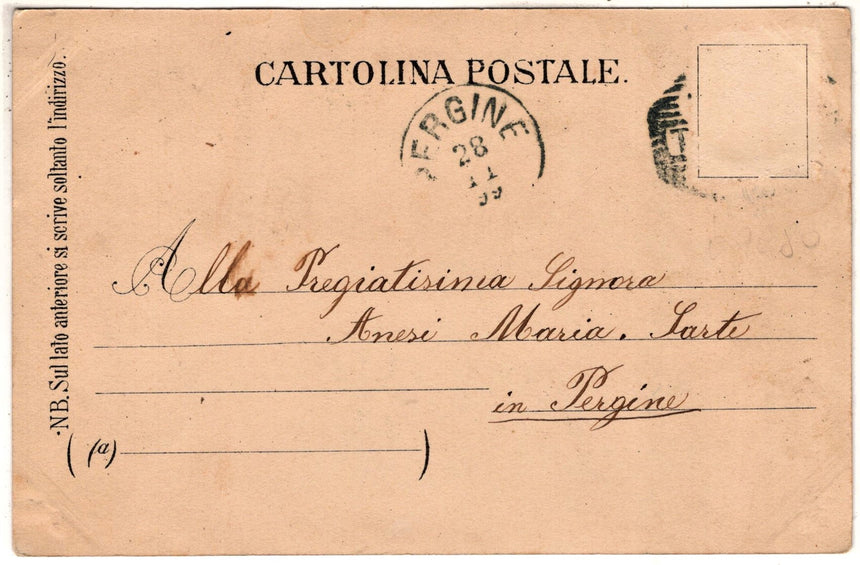 CARTOLINA POSTALE.
PERGINE
28
11
99
Alla Pregiatisima Signora
Anesi Maria. Sarte
in Pergine
(a)
NB. Sul lato anteriore si scrive soltanto l'indirizzo.